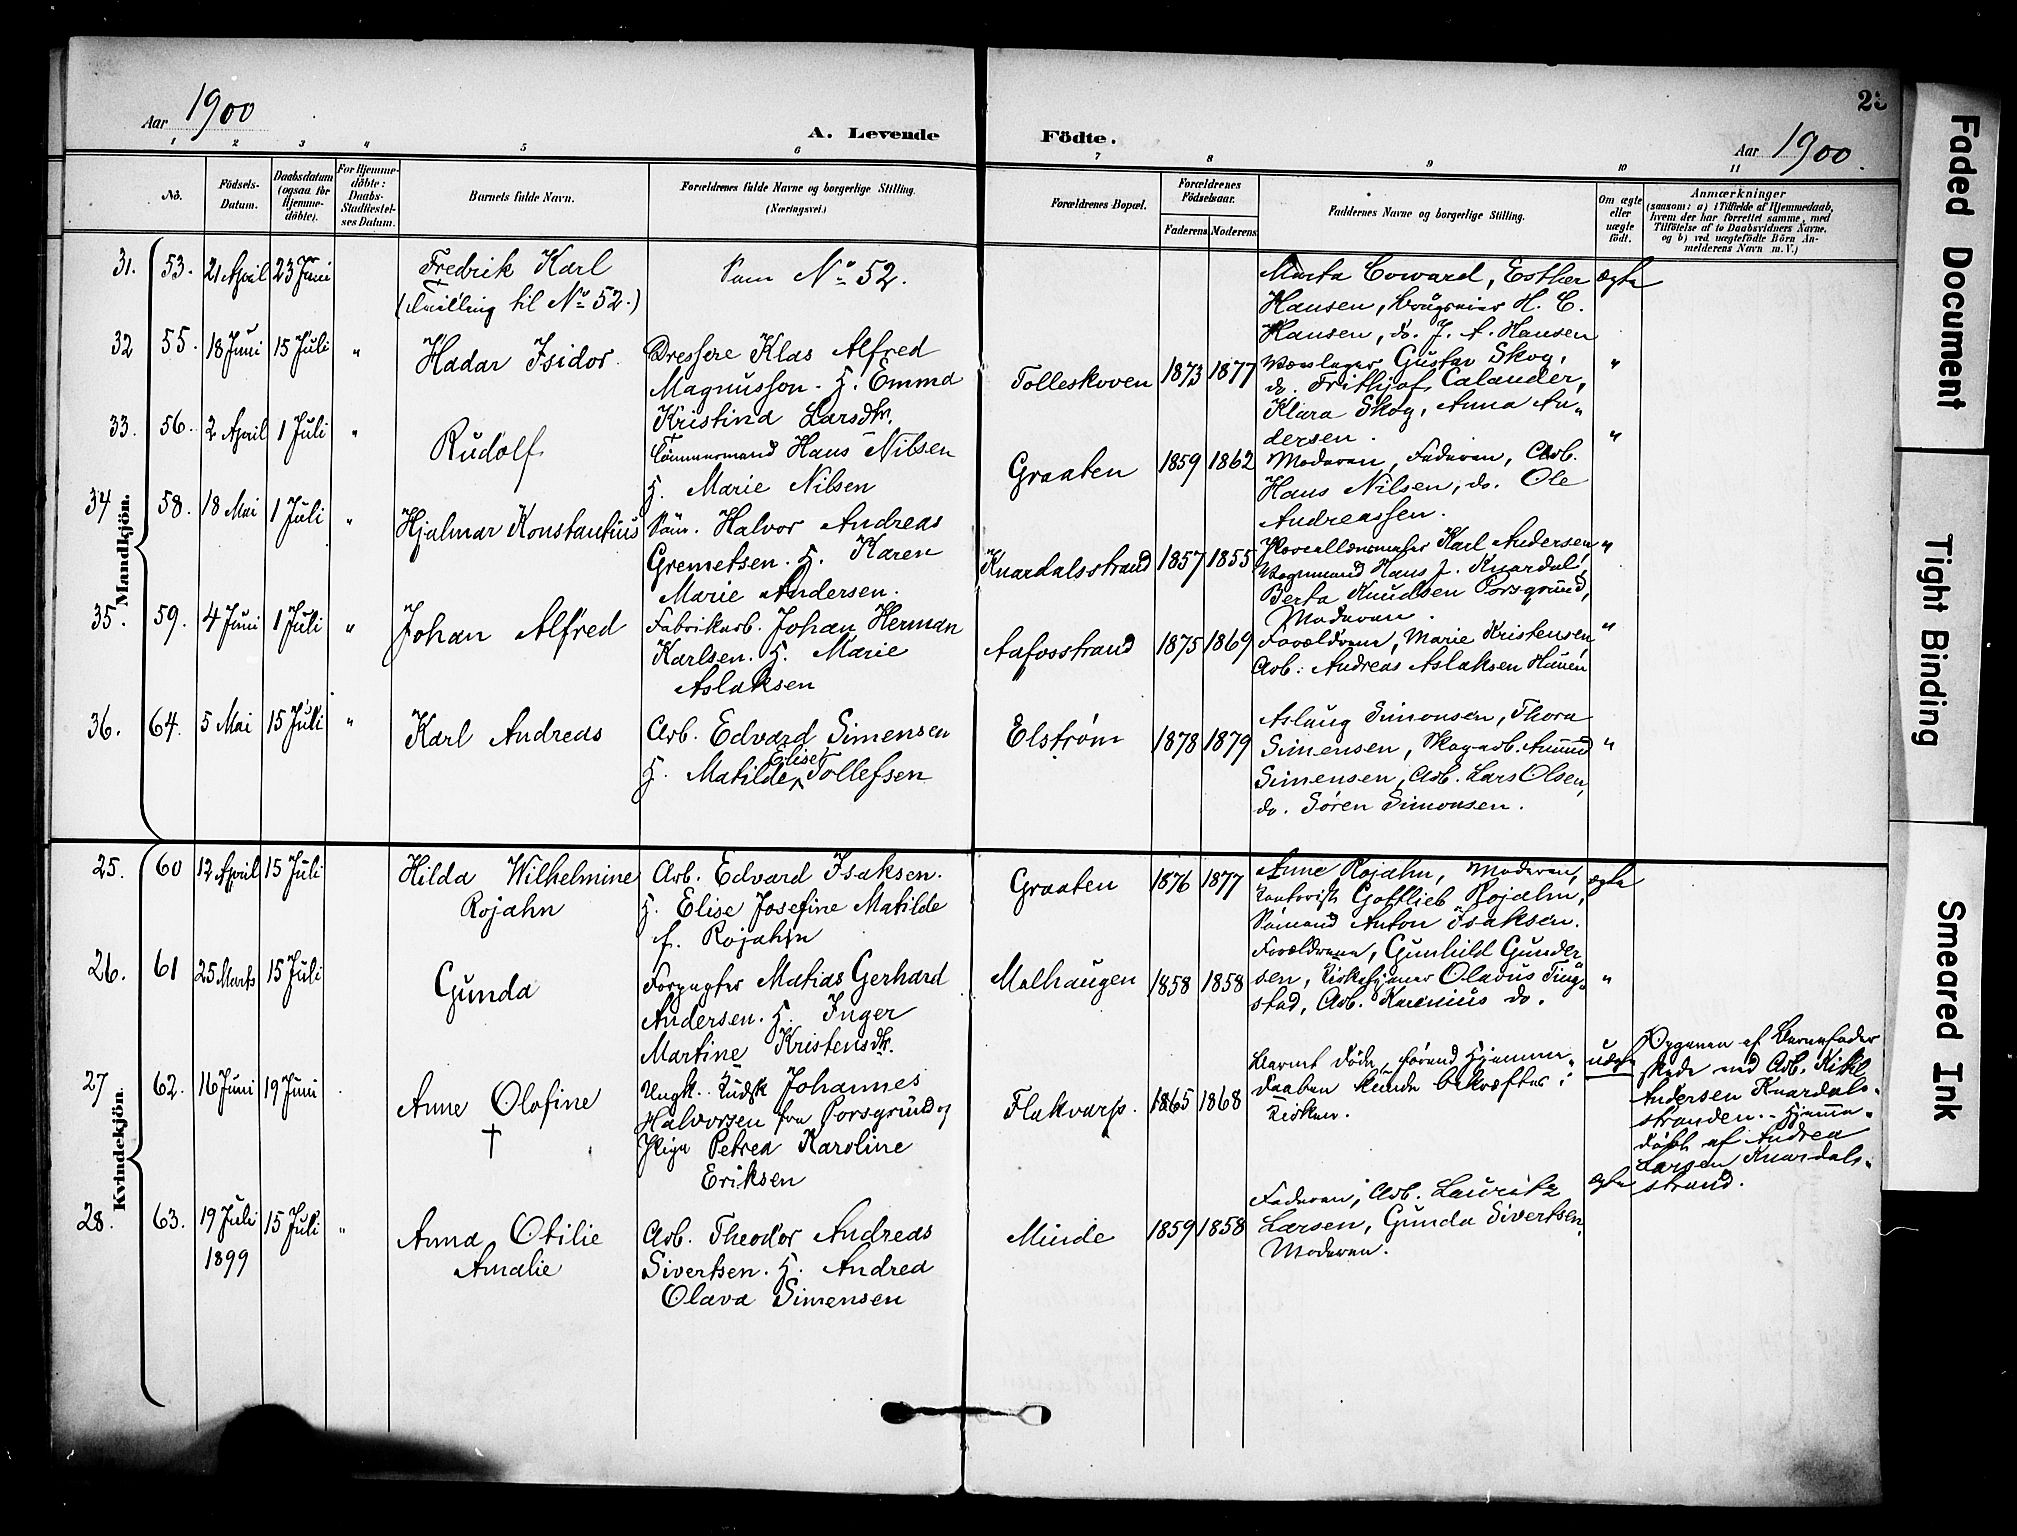 Aar 1900
A. Levende
Födte.
23
Aar 1900.
1 2 3 4 5 6 7 8 9 10 11
No.
Födsels-
Datum.
Daabsdatum
(ogsaa for
Hjemme-
döbte).
For Hjemme-
döbte:
Daabs-
Stadfæstel-
ses Datum.
Barnets fulde Navn.
Forældrenes fulde Navne og borgerlige Stilling.
(Næringsvei.)
Forældrenes Bopæl.
Forældrenes
Födselsaar.
Faderens Moderens
Faddernes Navne og borgerlige Stilling.
Om ægte
eller
uægte
født.
Anmærkninger
(saasom: a) i Tilfælde af Hjemmedaab,
hvem der har forrettet samme, med
Tilföielse af to Daabsvidners Navne,
og b) ved uægtefödte Börn An-
melderens Navn m. V.)
Mandkjön.
31. 53. 21 April 23 Juni
Fredrik Karl
(Tvilling til No 52.)
Som No 52.
Marta Coward, Esther
Hansen, Brugseier H. C.
Hansen, do. J. A. Hansen
ægte
32 55. 18 Juni 15 Juli "
Hadar Isidor.
Dressøre Klas Alfred
Magnusson. H. Emma
Kristina Larsdtr.
Tolleskoven 1873 1877
Gustav Skog,
do. Frithjof Calander,
Klara Skog, Anna An-
dersen.
"
33. 56. 2 April 1 Juli "
Rudolf
Tømmermand Hans Nilsen
H. Marie Nilsen
Graaten 1859 1862
Moderen, Faderen, Arb.
Hans Nilsen, do. Ole
Andreassen.
"
34 58. 18 Mai 1 Juli "
Hjalmar Konstantius
Søm. Halvor Andreas
Gremetsen. H. Karen
Marie Andersen.
Knardalsstrand 1857 1855
Porcellænsmaler Karl Andersen,
Vognmand Hans J. Knardal,
Berta Knudsen Porsgrund,
Moderen.
"
35. 59. 4 Juni 1 Juli "
Johan Alfred
Fabrikarb. Johan Herman
Karlsen. H. Marie
Aslaksen
Aafosstrand 1875 1869
Forældrene, Marie Kristensen,
Arb. Andreas Aslaksen Hauen
"
36. 64. 5 Mai 15 Juli "
Karl Andreas
Arb. Edvard Simensen
H. Matilde Elise Tollefsen
Elstrøm 1878 1879
Aslaug Simonsen, Thora
Simensen, Skogarb. Amund
Simensen, Arb. Lars Olsen,
do. Søren Simonsen.
"
Kvindekjön.
25. 60 12 April 15 Juli
Hilda Wilhelmine
Rojahn
Arb. Edvard Isaksen.
H. Elise Josefine Matilde
f. Rojahn
Graaten 1876 1877
Anne Rojahn, Moderen,
Kontorist Gottlieb Rojahn,
Sømand Anton Isaksen.
ægte
26. 61 25 Marts 15 Juli
Gunda
Forpagter Matias Gerhard
Andersen. H. Inger
Martine Kristensdtr.
Melhaugen 1858 1858
Forældrene, Gunhild Gunder
sen, Kirketjener Olavus Ting-
stad, Arb. Karenius do.
"
27 62. 16 Juni 19 Juni
Anne Olofine
†
Ungk. Kudsk Johannes
Halvorsen fra Porsgrund og
Pige Petrea Karoline
Eriksen
Flakvarp. 1865 1868
Barnet døde, førend Hjemme-
daaben kunde bekræftes i
Kirken.
uægte
Opgaven af Barnefader
skede ved Arb. Kittil
Andersen Knardals-
stranden. Hjemme-
døbt af Andrea
Larsen, Knardals-
strand.
28. 63. 19 Juli 15 Juli "
1899
Anna Otilie
Amalie
Arb. Theodor Andreas
Sivertsen. H. Andrea
Olava Simensen
Minde 1859 1858
Faderen, Arb. Lauritz
Larsen, Gunda Sivertsen,
Moderen.
ægte
Faded Document
Tight Binding
Smeared Ink